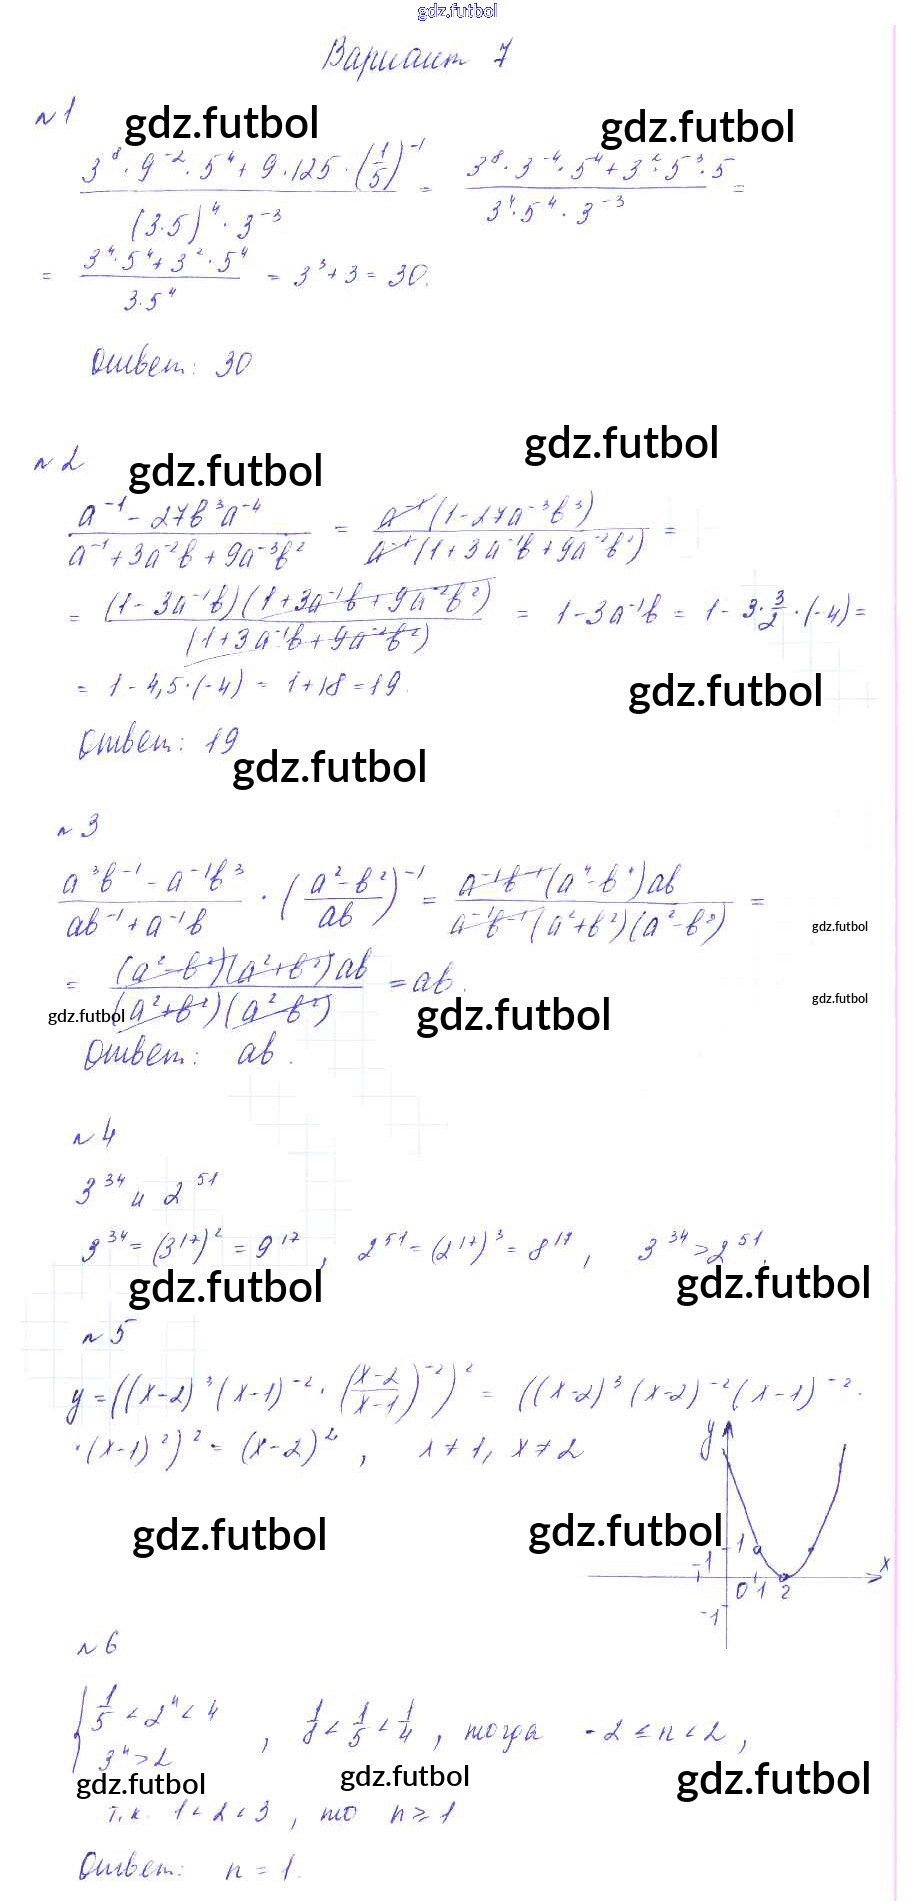 gdz.futbol
Вариант 7
№1
gdz.futbol gdz.futbol
(3^8·9^-2·5^4+9·125·(1/5)^-1)/((3·5)^4·3^-3) = (3^8·3^-4·5^4+3^2·5^3·5)/(3^4·5^4·3^-3) =
= (3^4·5^4+3^2·5^4)/(3·5^4) = 3^3+3=30.
Ответ: 30
№2 gdz.futbol gdz.futbol
(a^-1-27b^3a^-4)/(a^-1+3a^-2b+9a^-3b^2) = (a^-1(1-27a^-3b^3))/(a^-1(1+3a^-1b+9a^-2b^2)) =
= ((1-3a^-1b)(1+3a^-1b+9a^-2b^2))/((1+3a^-1b+9a^-2b^2)) = 1-3a^-1b = 1-3·3/2·(-4)=
= 1-4,5·(-4) = 1+18=19. gdz.futbol
Ответ: 19
gdz.futbol
№3
(a^3b^-1-a^-1b^3)/(ab^-1+a^-1b) · ((a^2-b^2)/(ab))^-1 = (a^-1b^-1(a^4-b^4)ab)/(a^-1b^-1(a^2+b^2)(a^2-b^2)) =
gdz.futbol
= ((a^2-b^2)(a^2+b^2)ab)/((a^2+b^2)(a^2-b^2)) = ab.
gdz.futbol gdz.futbol gdz.futbol
Ответ: ab.
№4
3^34 и 2^51
3^34=(3^17)^2=9^17, 2^51=(2^17)^3=8^17, 3^34>2^51.
gdz.futbol gdz.futbol
№5
y=((x-2)^3(x-1)^-2·((x-2)/(x-1))^-2)^2 = ((x-2)^3(x-2)^-2(x-1)^-2·
·(x-1)^2)^2=(x-2)^2, x≠1, x≠2
y
gdz.futbol gdz.futbol
1
-1 x
0 1 2
-1
№6
{1/5<2^n<4, 1/8<1/5<1/4, тогда -2≤n<2,
3^n>2
gdz.futbol gdz.futbol gdz.futbol
т.к. 1<2<3, то n≥1
Ответ: n=1.